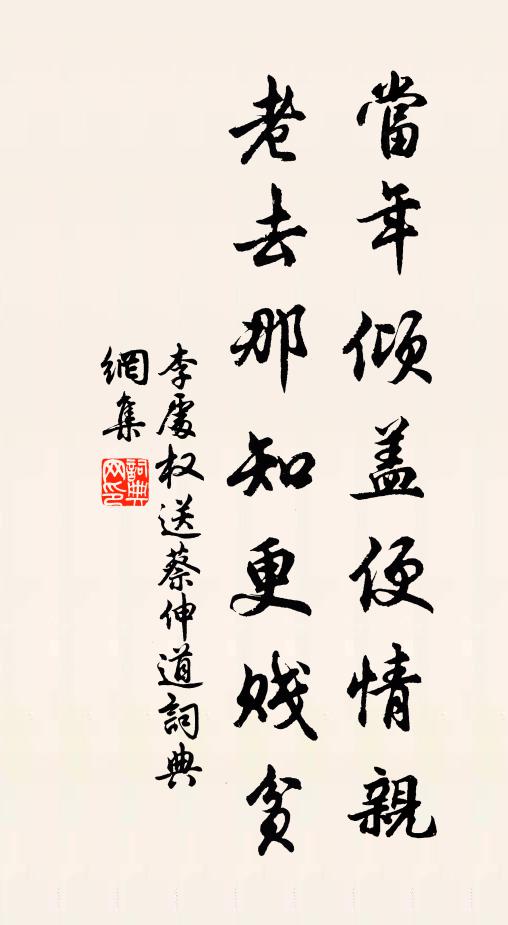 當年傾盖便情親
老去那知更賤貧
李處权送蔡伸道詞典
網集
詞典
网印